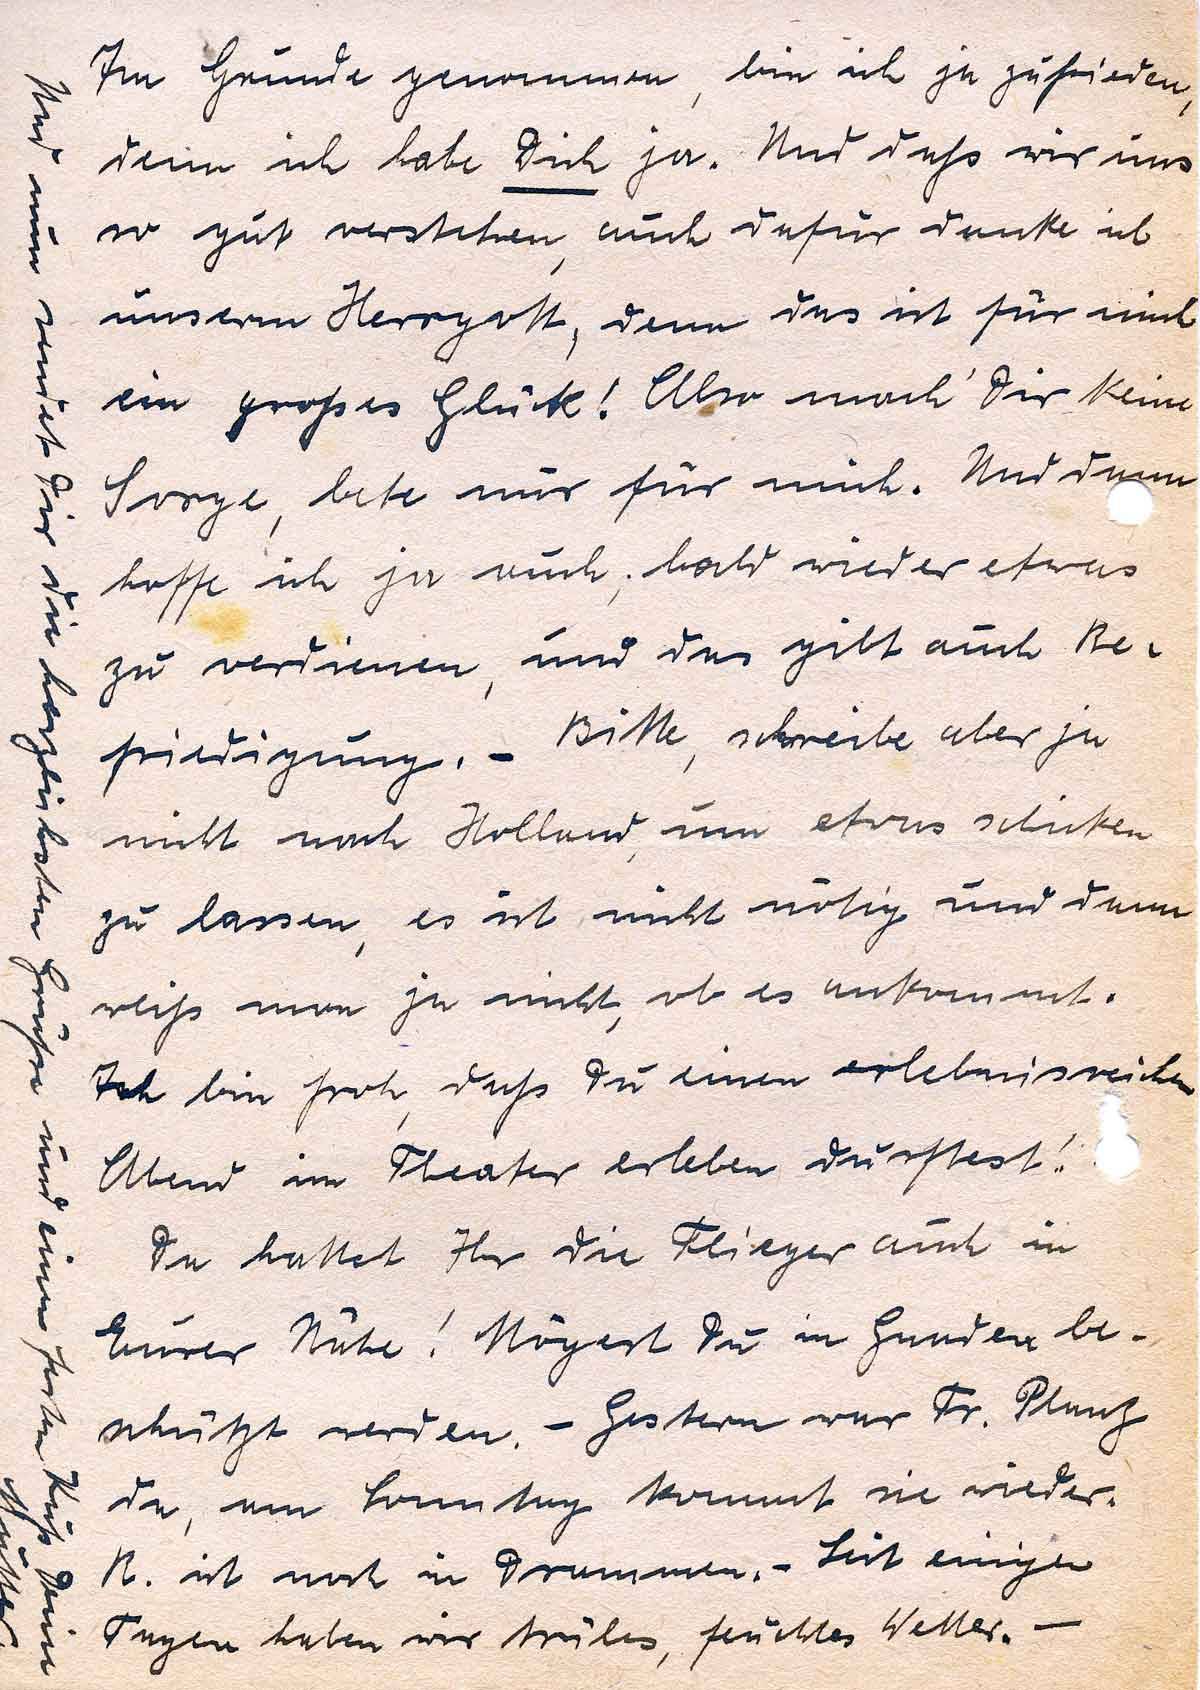 Im Grunde genommen, bin ich ja zufrieden,
denn ich habe Dich ja. Und daß wir uns
so gut verstehen, auch dafür danke ich
unserm Herrgott, denn das ist für mich
ein großes Glück! Also mach' Dir keine
Sorge, bete nur für mich. Und dann
hoffe ich ja auch, bald wieder etwas
zu verdienen, und das gibt auch Be-
friedigung. - Bitte, schreibe aber ja
nicht nach Holland, um etwas schicken
zu lassen, es ist nicht nötig und dann
weiß man ja nicht, ob es ankommt.
Ich bin froh, daß Du einen erlebnisreichen
Abend im Theater erleben durftest!
Da hattet Ihr die Flieger auch in
Eurer Nähe! Mögest Du in Gnaden be-
schützt werden. - Gestern war Fr. Planz
da, am Sonntag kommt sie wieder.
R. ist noch in Drammen. - Seit einigen
Tagen haben wir trübes, feuchtes Wetter. -
Und nun sendet Dir die herzlichsten Grüße und einen festen Kuß Deine
Mutter